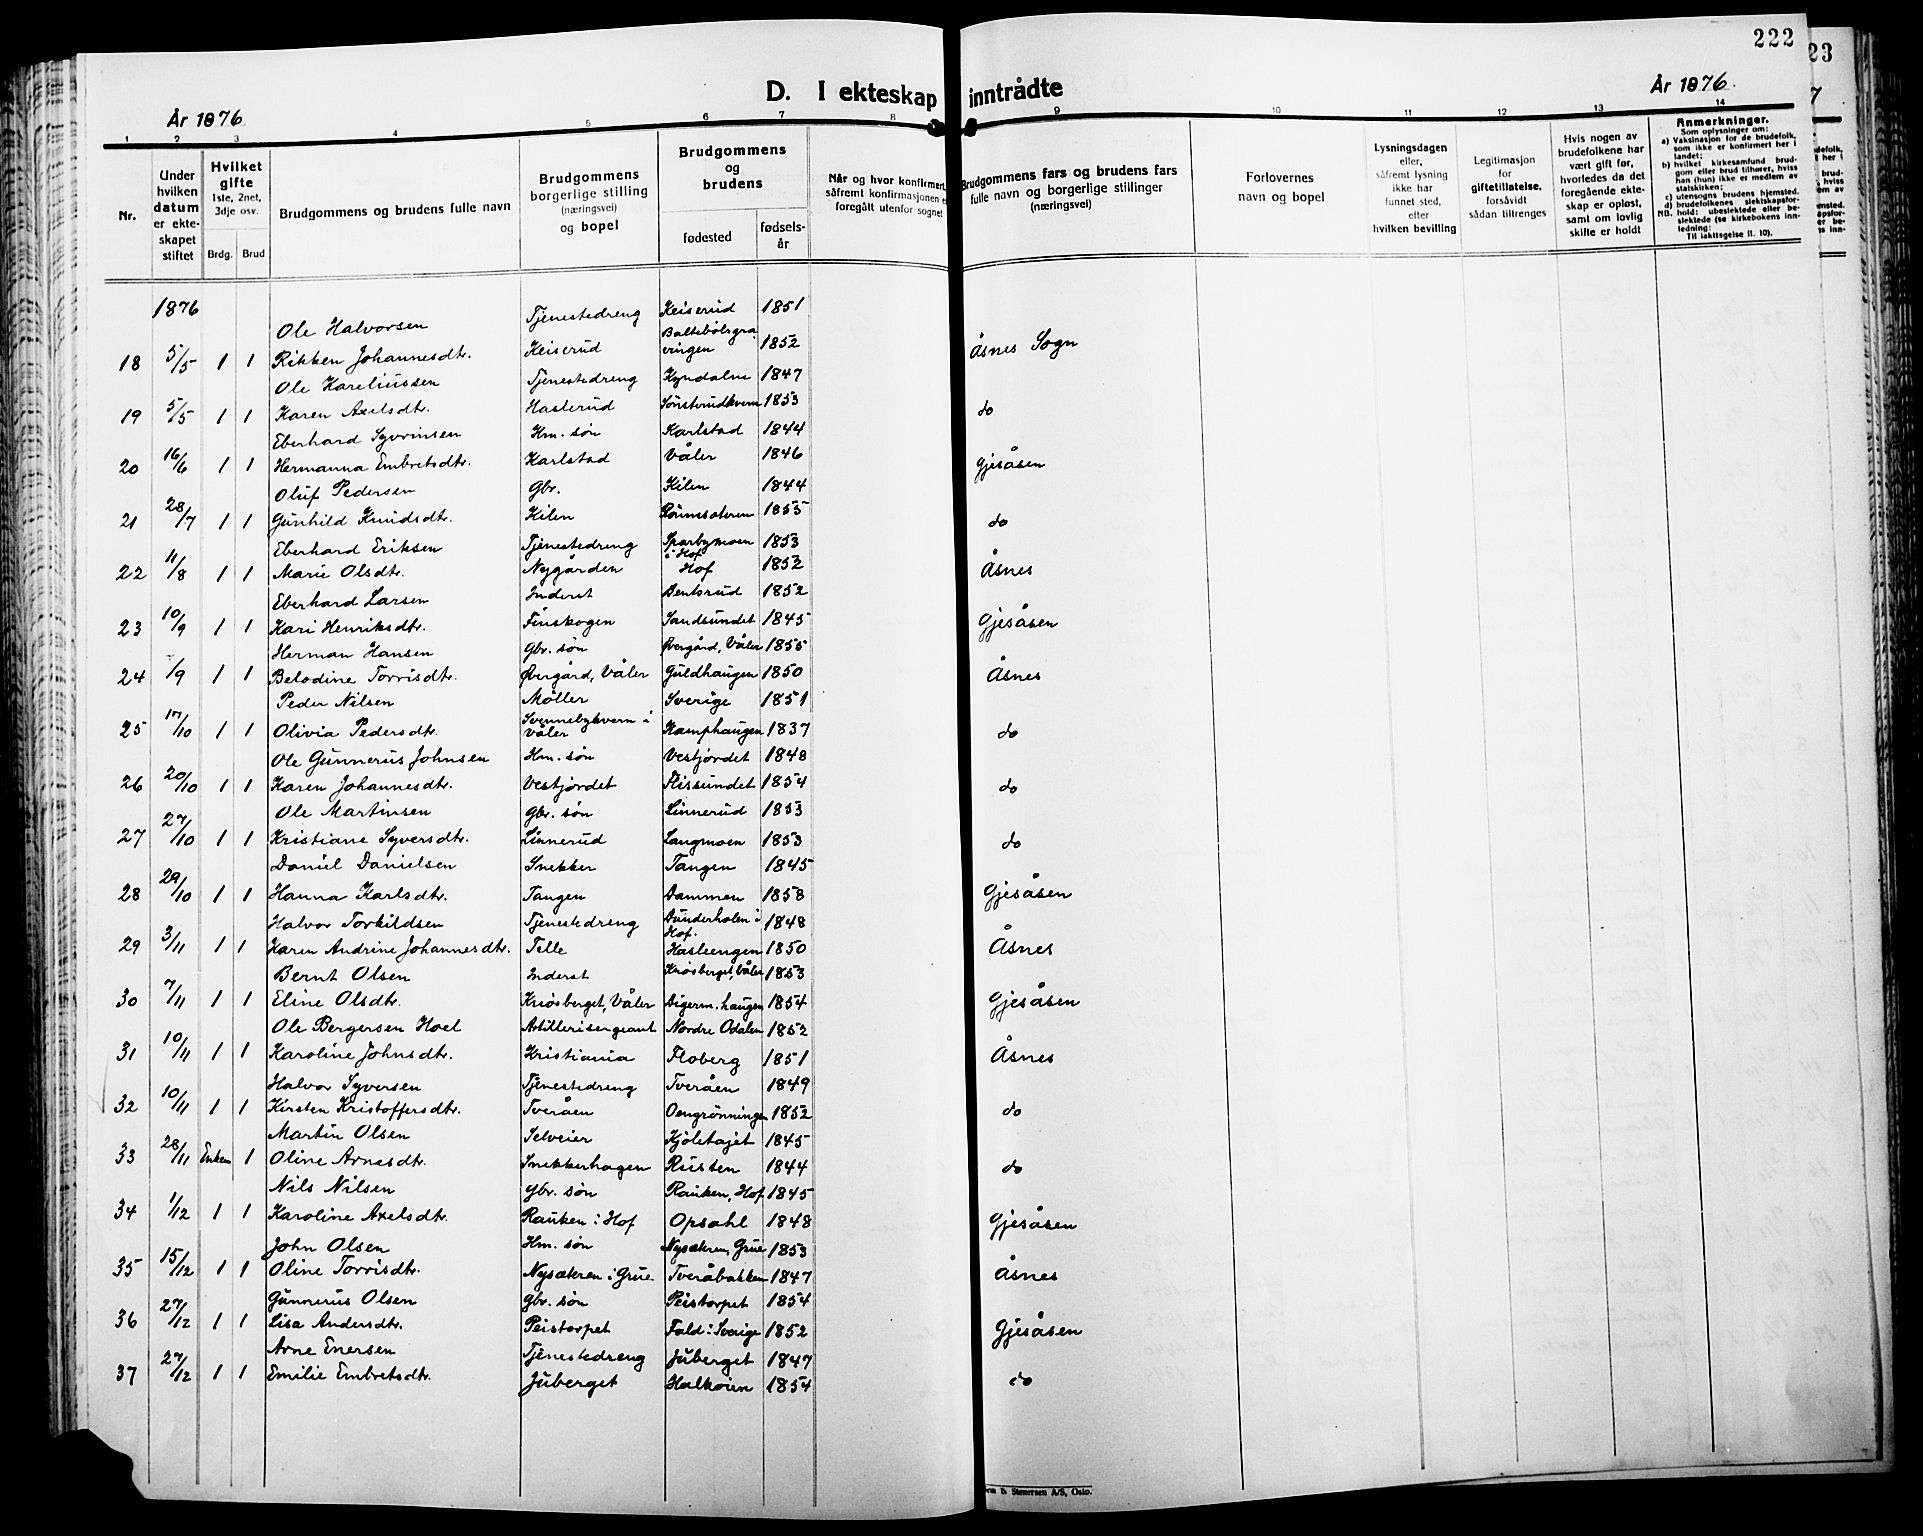 222
23
D. I ekteskap inntrådte
År 1876
År 1876
1 2 3 4 5 6 7 8 9 10 11 12 13 14
Nr.
Under hvilken datum er ekteskapet stiftet
Hvilket gifte
1ste, 2net, 3dje osv.
Brdg. Brud
Brudgommens og brudens fulle navn
Brudgommens borgerlige stilling (næringsvei) og bopel
Brudgommens og brudens
fødested
fødselsår
Når og hvor konfirmert,
såfremt konfirmasjonen e
foregått utenfor sognet
Brudgommens fars og brudens fars
fulle navn og borgerlige stillinger
(næringsvei)
Forlovernes
navn og bopel
Lysningsdagen
eller,
såfremt lysning
ikke har
funnet sted,
efter
hvilken bevilling
Legitimasjon
for
giftetillatelse,
forsåvidt
sådan tiltrenges
Hvis nogen av
brudefolkene har
vært gift før,
hvorledes da det
foregående ekte-
skap er opløst,
samt om lovlig
skifte er holdt
Anmerkninger.
Som oplysninger om:
a) Vaksinasjon for de brudefolk,
som ikke er konfirmert her i
landet;
b) hvilket kirkesamfund brud-
gom eller brud tilhører, hviss
han (hun) ikke er medlem av
statskirken;
c) utensogns brudens hjemsted.
d) brudefolkenes slektskapsfor-
NB. hold: ubeslektede eller be-
slektede (se kirkebokens inn-
ledning:
Til iakttagelse II. 10).
1876
Ole Halvorsen Tjenestedreng Keiserud 1851
18 5/5 1 1 Rikken Johannesdtr. Keiserud Baltebölsgraveringen 1852 Åsnes Sogn
Ole Kareliussen Tjenestedreng Kyndalm 1847
19 5/5 1 1 Karen Axelsdtr. Hasterud Sönsterudkvern 1853 do
Eberhard Syvrinsen Hm. søn Karlstad 1844
20 16/6 1 1 Hermanna Embretsdtr. Karlstad Våler 1846 Gjesåsen
Oluf Pedersen Gbr. Kilen 1844
21 28/7 1 1 Gunhild Knudsdtr. Kilen Römssæteren 1855 do
Eberhard Eriksen Tjenestedreng Sparbymoen i Hof 1853
22 11/8 1 1 Marie Olsdtr. Nygården Hof 1852 Åsnes
Eberhard Larsen Inderst Bentsrud 1852
23 10/9 1 1 Kari Henriksdtr. Finskogen Sandsundet 1845 Gjesåsen
Herman Hansen Gbr. søn Øvergård, Våler 1855
24 /9 1 1 Belodine Torrisdtr. Øvergård, Våler Guldhaugen 1850 Åsnes
Peder Nilsen Møller Sverige 1851
25 17/10 1 1 Olivia Pedersdtr. Svennebykvern i Våler Kamphaugen 1837 do
Ole Gunnerus Johnsen Hm. søn Vestjordet 1848
26 20/10 1 1 Karen Johannesdtr. Vestjordet Flissundet 1854 do
Ole Martinsen Gbr. søn Linnerud 1853
27 27/10 1 1 Kristiane Syversdtr. Linnerud Langmoen 1853 do
Daniel Danielsen Snekker Tangen 1845
28 29/10 1 1 Hanna Karlsdtr. Tangen Dammen 1858 Gjesåsen
Halvor Torkildsen Tjenestedreng Dunderholen i Hof. 1848
29 3/11 1 1 Karen Andrine Johannesdtr. Telle Hasleengen 1850 Åsnes
Bernt Olsen Inderst Knösberget, Våler 1853
30 7/11 1 1 Eline Olsdtr. Knösberget, Våler Digerm.haugen 1854 Gjesåsen
Ole Bergersen Hoel Artillerisergeant Nordre Odalen 1852
31 10/11 1 1 Karoline Johnsdtr. Kristiania Floberg 1851 Åsnes
Halvor Syversen Tjenestedreng Tveråen 1849
32 10/11 1 1 Kirsten Kristoffersdtr. Tveråen Oengrönningen 1852 do
Martin Olsen Selveier Kjöletajet 1845
33 28/11 Enkem 1 Oline Arnesdtr. Snekkerhagen Rusten 1844 do
Nils Nilsen Gbr. søn Rauken, Hof 1845
34 1/12 1 1 Karoline Axelsdtr. Rauken i Hof Opsahl 1848 Gjesåsen
John Olsen Hm. søn Nysætren, Grue 1853
35 15/12 1 1 Oline Torrisdtr. Nysætren i Grue. Tveråbakken 1847 Åsnes
Gunnerus Olsen Gbr. søn Peistorpet 1854
36 27/12 1 1 Lisa Andersdtr. Peistorpet Fald i Sverige 1852 Gjesåsen
Arne Enersen Tjenestedreng Juberget 1847
37 27/12 1 1 Emilie Embretsdtr. Juberget Halkoien 1854 do
& Stenersen A/S, Oslo.